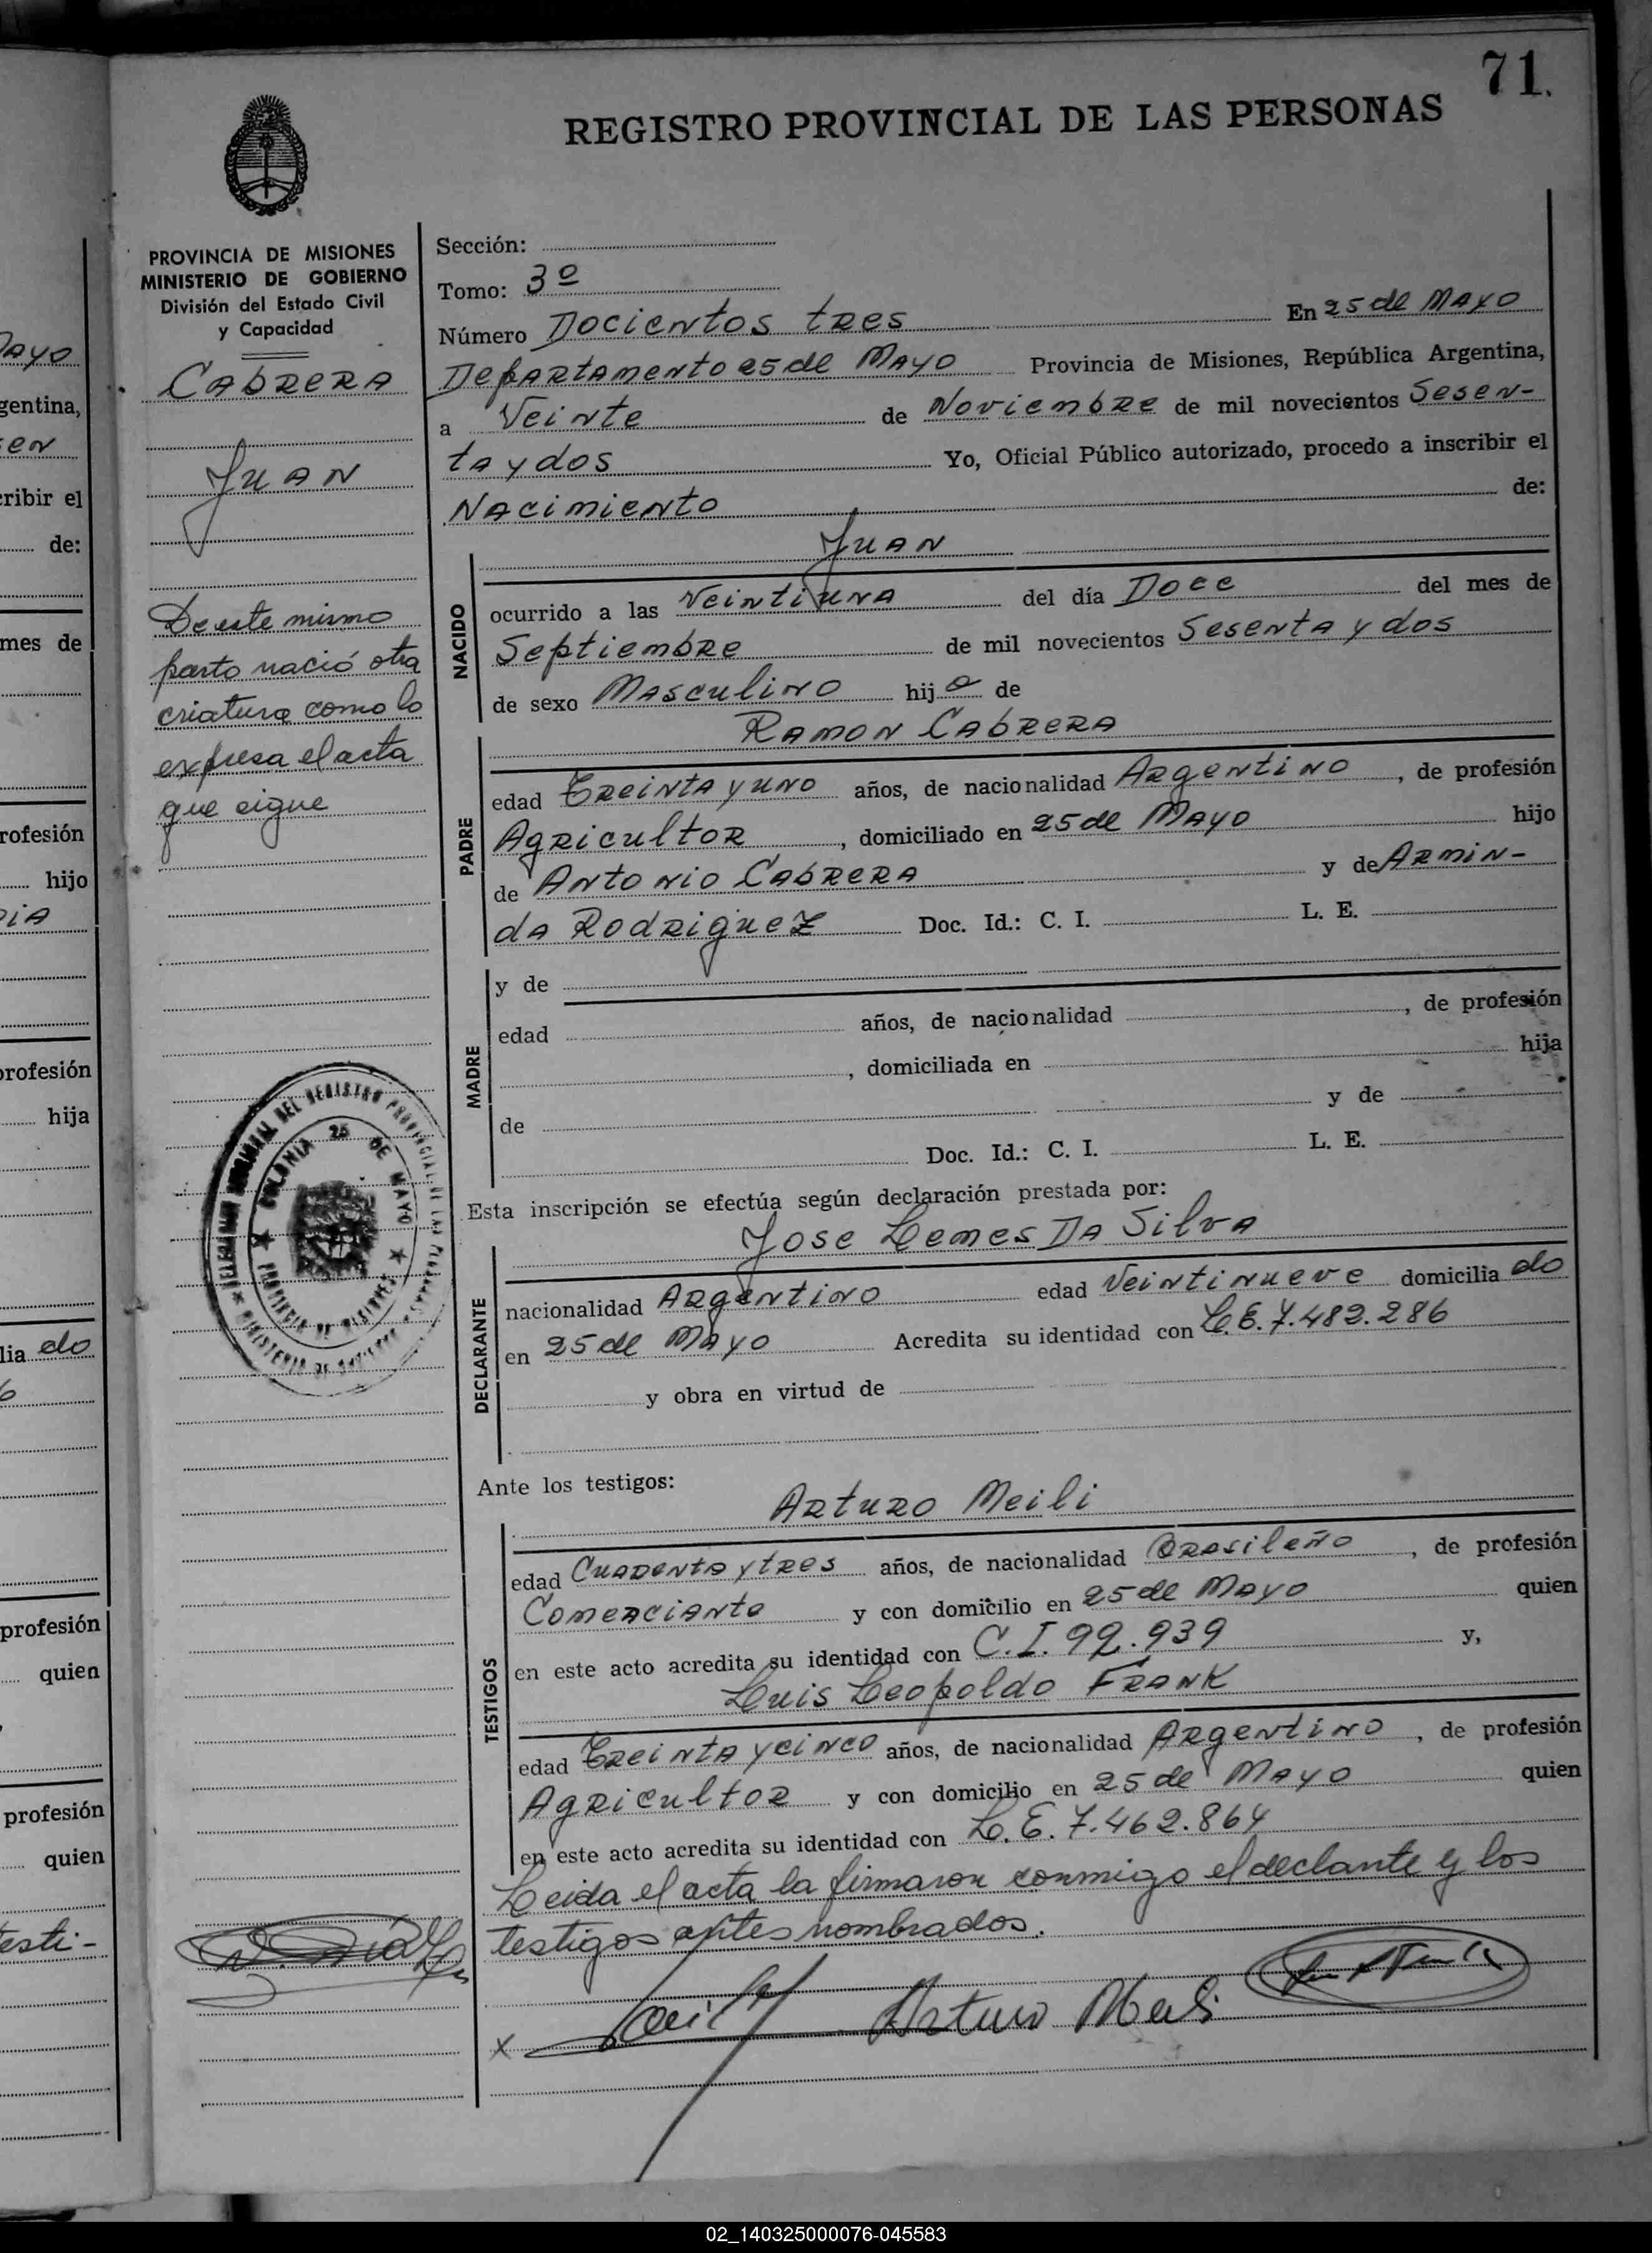 71.
REGISTRO PROVINCIAL DE LAS PERSONAS
PROVINCIA DE MISIONES
MINISTERIO DE GOBIERNO
División del Estado Civil
y Capacidad
CABRERA
JUAN
De este mismo
parto nació otra
criatura como lo
expresa el acta
que sigue
Sección:
Tomo: 3º
Número Docientos tres En 25 de Mayo
Departamento 25 de Mayo Provincia de Misiones, República Argentina,
a Veinte de Noviembre de mil novecientos Sesen-
ta y dos Yo, Oficial Público autorizado, procedo a inscribir el
Nacimiento de:
JUAN
NACIDO
ocurrido a las Veintiuna del día Doce del mes de
Septiembre de mil novecientos Sesenta y dos
de sexo Masculino hijo de
Ramon Cabrera
PADRE
edad Treinta y uno años, de nacionalidad Argentino, de profesión
Agricultor, domiciliado en 25 de Mayo hijo
de Antonio Cabrera y de Armin-
da Rodriguez Doc. Id.: C. I. L. E.
MADRE
y de
edad años, de nacionalidad , de profesión
, domiciliada en hija
de y de
Doc. Id.: C. I. L. E.
Esta inscripción se efectúa según declaración prestada por:
Jose Lemes Da Silva
DECLARANTE
nacionalidad Argentino edad Veintinueve domiciliado
en 25 de Mayo Acredita su identidad con L.E. 7.482.286
y obra en virtud de
Ante los testigos:
Arturo Meili
TESTIGOS
edad Cuarenta y tres años, de nacionalidad Brasileño, de profesión
Comerciante y con domicilio en 25 de Mayo quien
en este acto acredita su identidad con C.I. 92.939 y,
Luis Leopoldo Frank
edad Treinta y cinco años, de nacionalidad Argentino, de profesión
Agricultor y con domicilio en 25 de Mayo quien
en este acto acredita su identidad con L.E. 7.462.864
Leida el acta la firmaron conmigo el declante y los
testigos antes nombrados.
x Arturo Meili
COLONIA 25 DE MAYO
PROVINCIA DE MISIONES
02_140325000076-045583